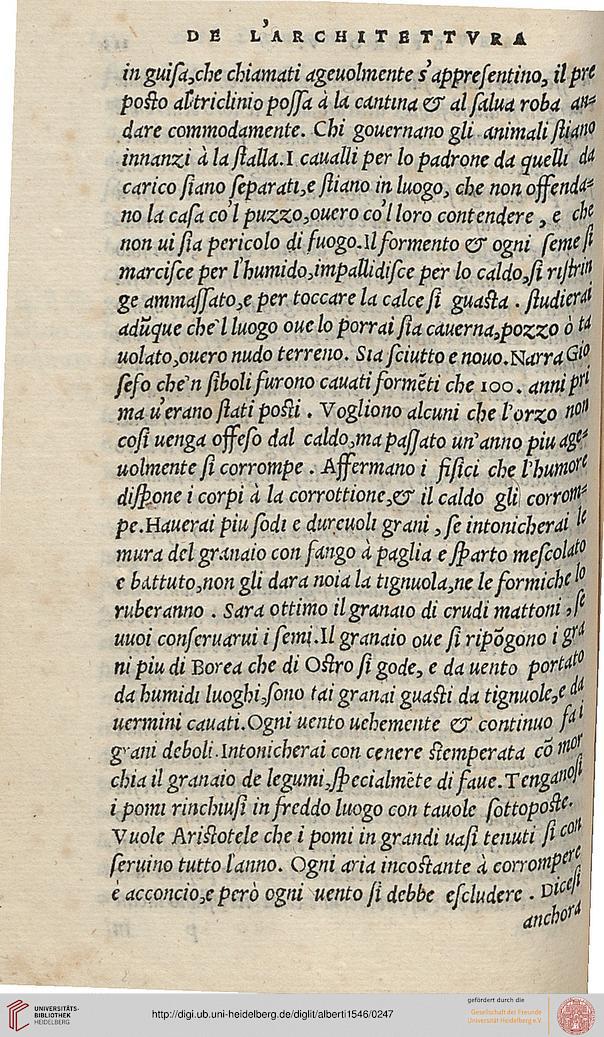 DE L'ARCHITETTVRA
in guiſa,che chiamati ageuolmente s'appreſentino, il pre
poſto al triclinio poſſa à la cantina & al ſalua roba an=
dare commodamente. Chi gouernano gli animali ſtiano
innanzi à la ſtalla.I caualli per lo padrone da quelli da
carico ſiano ſeparati,e ſtiano in luogo, che non offenda=
no la caſa co'l puzzo,ouero co'l loro contendere, e che
non ui ſia pericolo di fuogo.Il formento & ogni ſeme ſi
marciſce per l'humido,impallidiſce per lo caldo,ſi riſtrin
ge ammaſſato,e per toccare la calce ſi guaſta . ſtudierai
adũque che'l luogo oue lo porrai ſia cauerna,pozzo ò ta
uolato,ouero nudo terreno. Sia ſciutto e nouo.Narra Gio
ſeſo che'n ſiboli furono cauati formẽti che 100. anni pri
ma u'erano ſtati poſti . Vogliono alcuni che l'orzo non
coſi uenga offeſo dal caldo,ma paſſato un'anno piu age=
uolmente ſi corrompe . Affermano i fiſici che l'humore
diſpone i corpi à la corrottione,& il caldo gli corrom=
pe.Hauerai piu ſodi e dureuoli grani , ſe intonicherai le
mura del granaio con fango à paglia e ſparto meſcolato
e battuto,non gli dara noia la tignuola,ne le formiche lo
ruberanno . Sara ottimo il granaio di crudi mattoni , ſe
uuoi conſeruarui i ſemi.Il granaio oue ſi ripõgono i gra
ni piu di Borea che di Oſtro ſi gode, e da uento portato
da humidi luoghi,ſono tai granai guaſti da tignuole,e da
uermini cauati.Ogni uento uehemente & continuo fa i
grani deboli.Intonicherai con cenere ſtemperata cõ mor
chia il granaio de legumi,ſpecialmẽte di faue.Tenganoſi
i pomi rinchiuſi in freddo luogo con tauole ſottopoſte.
Vuole Ariſtotele che i pomi in grandi uaſi tenuti ſi con
ſeruino tutto l'anno. Ogni aria incoſtante à corrompere
è acconcio,e però ogni uento ſi debbe eſcludere . Diceſi
anchora
UNIVERSITÄTS-
BIBLIOTHEK
HEIDELBERG
http://digi.ub.uni-heidelberg.de/diglit/alberti1546/0247
gefördert durch die
Gesellschaft der Freunde
Universität Heidelberg e.V.